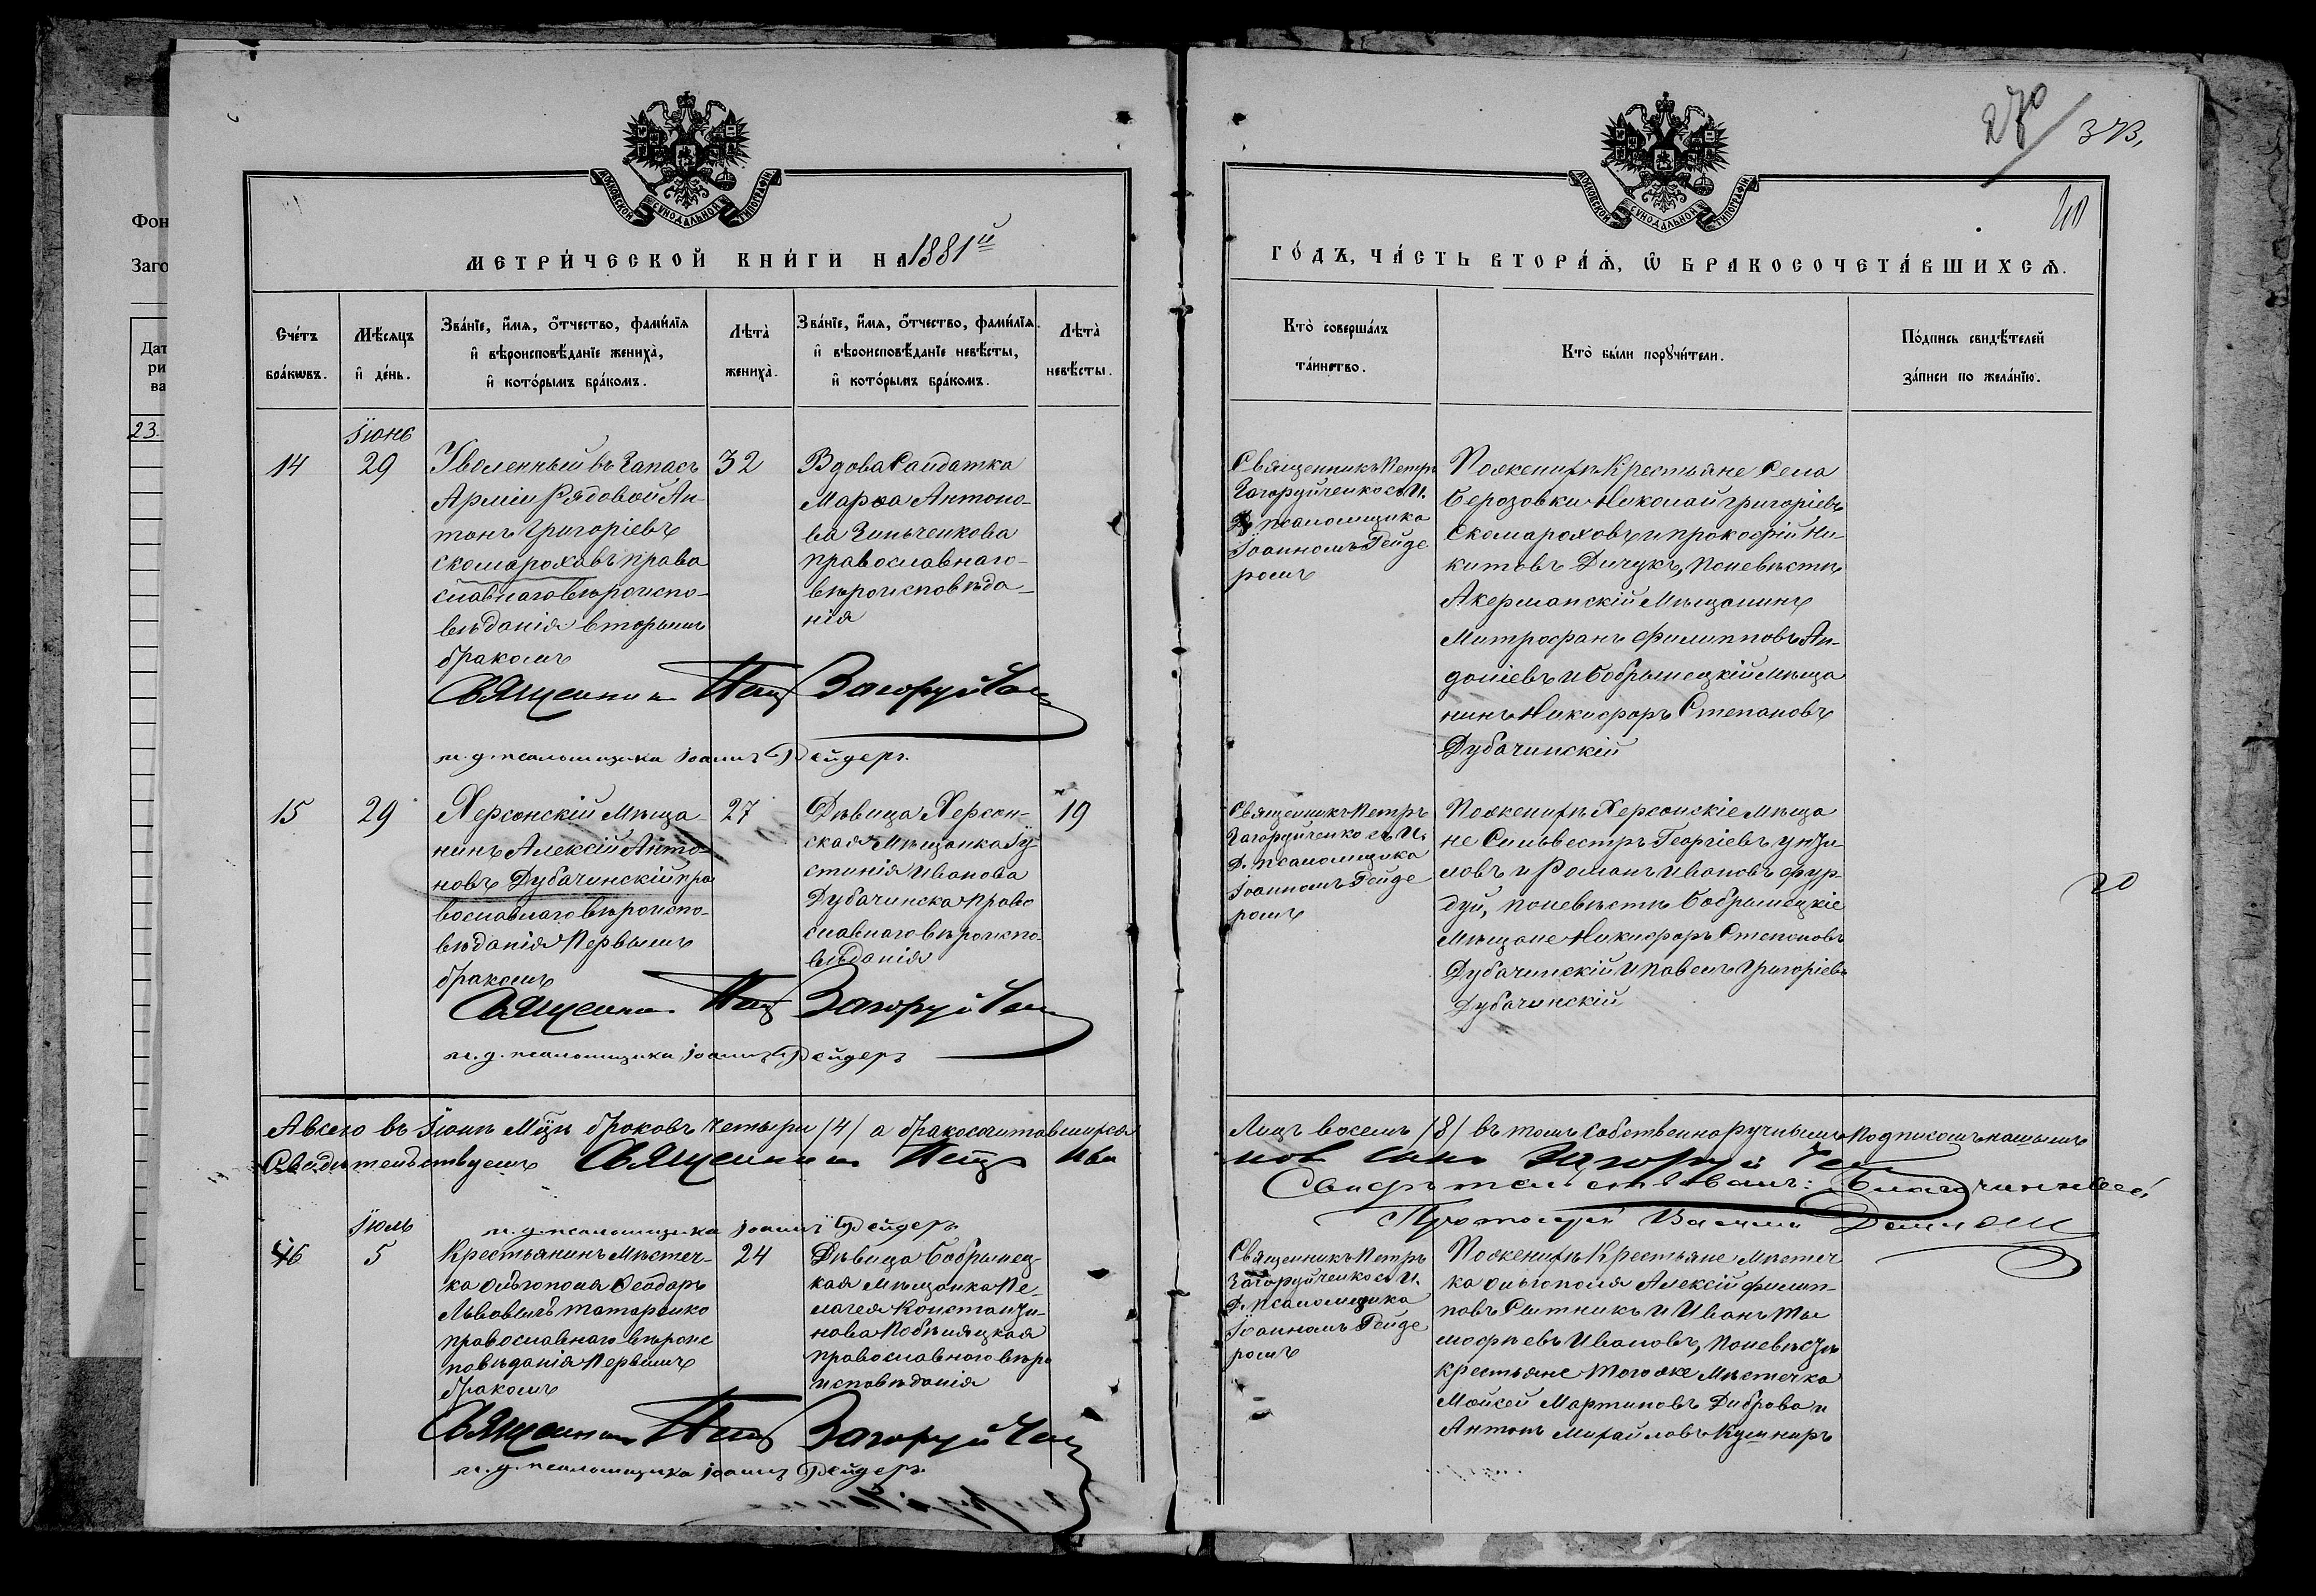 Фон
Заго
Дат
ри
ва
23.
МОСКОВСКОЙ СѴНОДАЛЬНОЙ ТИПОГРАФІИ
МЕТРИ́ЧЕСКОЙ КНИ́ГИ НА 1881й
Сче́тъ
бра́кѡвъ.
Мѣ́сяцъ
и҆ де́нь.
Зва́нїе, и҆́мѧ, ѻ҆́тчество, фами́лїѧ
и҆ вѣроисповѣ́данїе жениха̀,
и҆ кото́рымъ бра́комъ.
Лѣта̀
жениха̀.
Зва́нїе, и҆́мѧ, ѻ҆́тчество, фами́лїѧ
и҆ вѣроисповѣ́данїе невѣ́сты,
и҆ кото́рымъ бра́комъ.
Лѣта̀
невѣ́сты.
Іюнь
14
29
Уволенный въ Запасъ
Арміи Рядовой Ан-
тонъ Григоріевъ
Скомароховъ право
славнаго вѣроиспо-
вѣданія вторымъ
бракомъ
32
Вдова Солдатка
Марѳа Антоно-
ва Зинченкова
православнаго
вѣроисповѣда-
нія
Священник Петр Загоруйченко
и. д. псаломщика Іоаннъ Гейдеръ
15
29
Херсонскій Мѣща-
нинъ Алексій Анто-
новъ Дубачинскій пра
вославнаго вѣроиспо-
вѣданія Первымъ
бракомъ
27
Дѣвица Херсон-
ская Мѣщанка Іу-
стинія Иванова
Дубачинская право
славнаго вѣроиспо-
вѣданія
19
Священник Петр Загоруйченко
и. д. псаломщика Іоаннъ Гейдеръ
А всего въ Іюнѣ М-цѣ браковъ четыри /4/ а бракосочитавшихся
Свѣдѣтельствуемъ Священник Петр Ива
Іюль
и. д. псаломщика Іоаннъ Гейдеръ
16
5
Крестьянинъ Мѣстеч-
ка Овідіополя Ѳеодоръ
Львовичъ Татаренко
православнаго вѣроис
повѣданія Первымъ
бракомъ
24
Дѣвица Бобрынец
кая Мѣщанка Пе-
лагея Константи-
нова
православнаго вѣро
исповѣданія
Священник Петр Загоруйченко
и. д. псаломщика Іоаннъ Гейдеръ
270/373,
40
МОСКОВСКОЙ СѴНОДАЛЬНОЙ ТИПОГРАФІИ
ГО́ДЪ, ЧА́СТЬ ВТОРА́Ѧ, Ѡ҆ БРАКОСОЧЕТА́ВШИХСѦ.
Кто̀ соверша́лъ
та́инство.
Кто̀ бы́ли порꙋчи́тели.
По́дпись свидѣ́телей
за́писи по жела́нїю.
Священникъ Петръ
Загоруйченко съ И.
Д. псаломщика
Іоанномъ Гейде
ромъ
По женихѣ Крестьяне Села
Берозовки Николай Григоріевъ
Скомароховъ и прокофій Ни-
китовъ Дичукъ, по невѣстѣ
Акерманскій Мѣщанинъ
Митрофанъ Филипповъ Ан-
доніевъ и Бобрынецкій мѣща
нинъ Никифоръ Степановъ
Дубачинскій
Священникъ Петръ
Загоруйченко съ И.
Д. псаломщика
Іоанномъ Гейде
ромъ
По женихѣ Херсонскіе Мѣща
не Сильвестръ Георгіевъ
и Романъ Ивановъ Фур-
дуй, по невѣстѣ Бобрынецкіе
Мѣщане Никифоръ Степановъ
Дубачинскій и Павелъ Григоріевъ
Дубачинскій
20
Лицъ восемъ /8/ въ томъ Собственноручнымъ подписомъ нашимъ
нов Сынъ Загоруйчен
Свидѣтельствовалъ: Благочинный
Протоіерей Василій
Священникъ Петръ
Загоруйченко съ И.
Д. псаломщика
Іоанномъ Гейде
ромъ
По женихѣ Крестьяне Мѣстеч
ка Овідіополя Алексій Филип-
повъ Сытникъ и Иванъ Ти
мофѣевъ Ивановъ, по невѣстѣ
крестьяне того же Мѣстечка
Мойсей Мартиновъ Диброва и
Антонъ Михайловъ Кушниръ